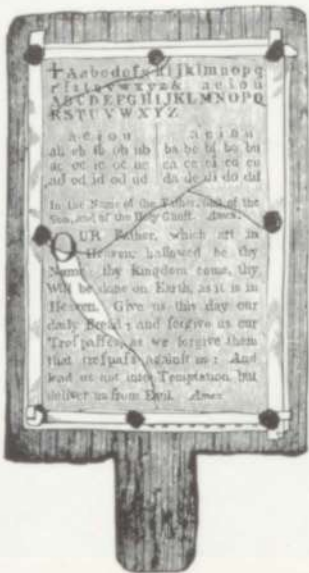 + Aabcdefghijklmnopq
rſstuvwxyz& aeiou
ABCDEFGHIJKLMNOPQ
RSTUVWXYZ
a e i o u a e i o u
ab eb ib ob ub ba be bi bo bu
ac ec ic oc uc ca ce ci co cu
ad ed id od ud da de di do du
In the Name of the Father, and of the
Son, and of the Holy Ghoſt. Amen.
OUR Father, which art in
Heaven, hallowed be thy
Name; thy Kingdom come, thy
Will be done on Earth, as it is in
Heaven. Give us this day our
daily Bread; and forgive us our
Treſpaſſes, as we forgive them
that treſpaſs againſt us: And
lead us not into Temptation, but
deliver us from Evil. Amen.